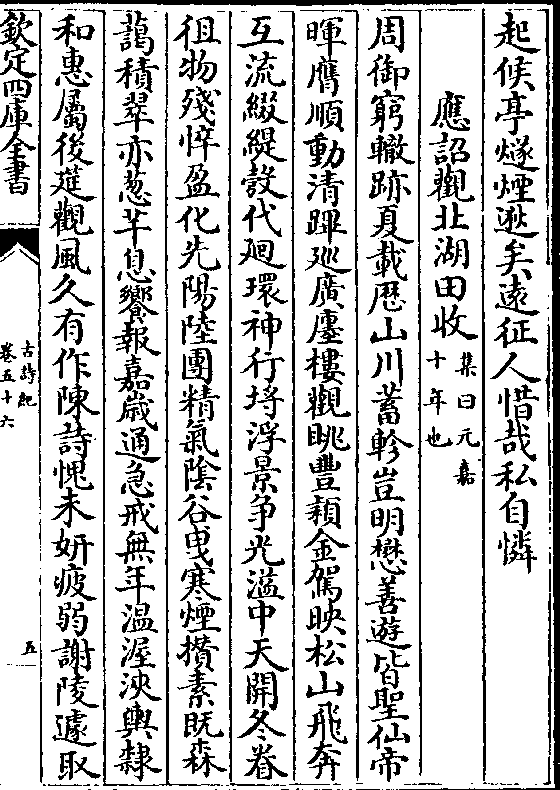 起候亭燧煙遬矣遠征人惜哉私自憐
應詔觀北湖田收集曰元嘉十年也
周御窮轍跡夏載歴山川蓄軫豈明懋善遊皆聖仙帝
暉膺順動清蹕廵廣廛樓觀眺豐穎金駕映松山飛奔
互流綴緹彀代廻環神行埒浮景争光溢中天開冬眷
徂物殘悴盈化先陽陸團精氣陰谷曳寒煙攅素既森
藹積翠亦葱芊息饗報嘉嵗通急戒無年温渥浹輿隸
和惠屬後筵觀風久有作陳詩愧未妍疲弱謝陵遽取
欽定四庫全書
古詩紀
卷五十六
五